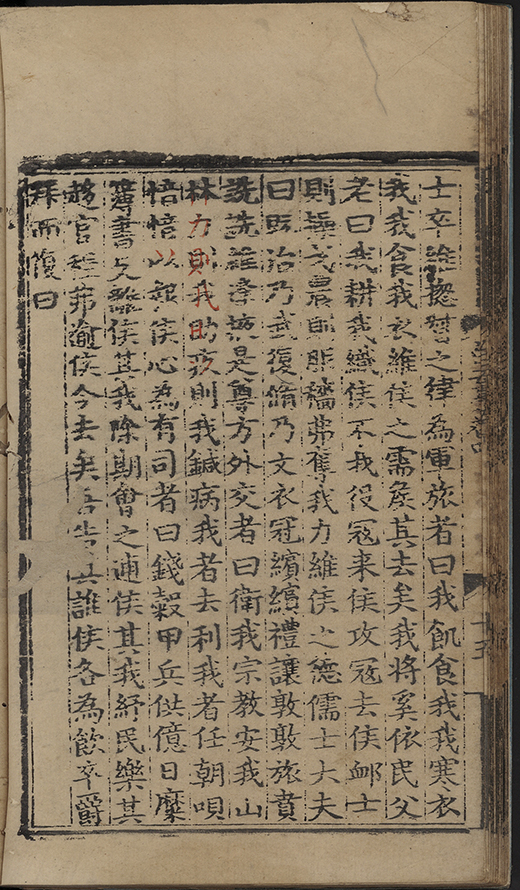 士卒維撫督之律為軍旅者曰我飢食我我寒衣
我我食我衣維侯之需侯其去矣我將奚依民父
老曰我耕我織侯不我役冦来侯攻冦去侯䘏士
則弗奪我力維侯之德儒士大夫
曰既治乃武復脩乃文衣冠繽繽禮讓敦敦旅賁
詵詵是尊方外交者曰衛我宗教安我山
林力則我助孜則我鍼病我者去利我者任朝唄
愔愔以報侯心為有司者曰錢穀甲兵供億日縻
簿書侯其我除期會之逋侯其我紓民樂其
官弗逾侯今去矣吾告其誰侯各為飲卒爵
拜而復曰